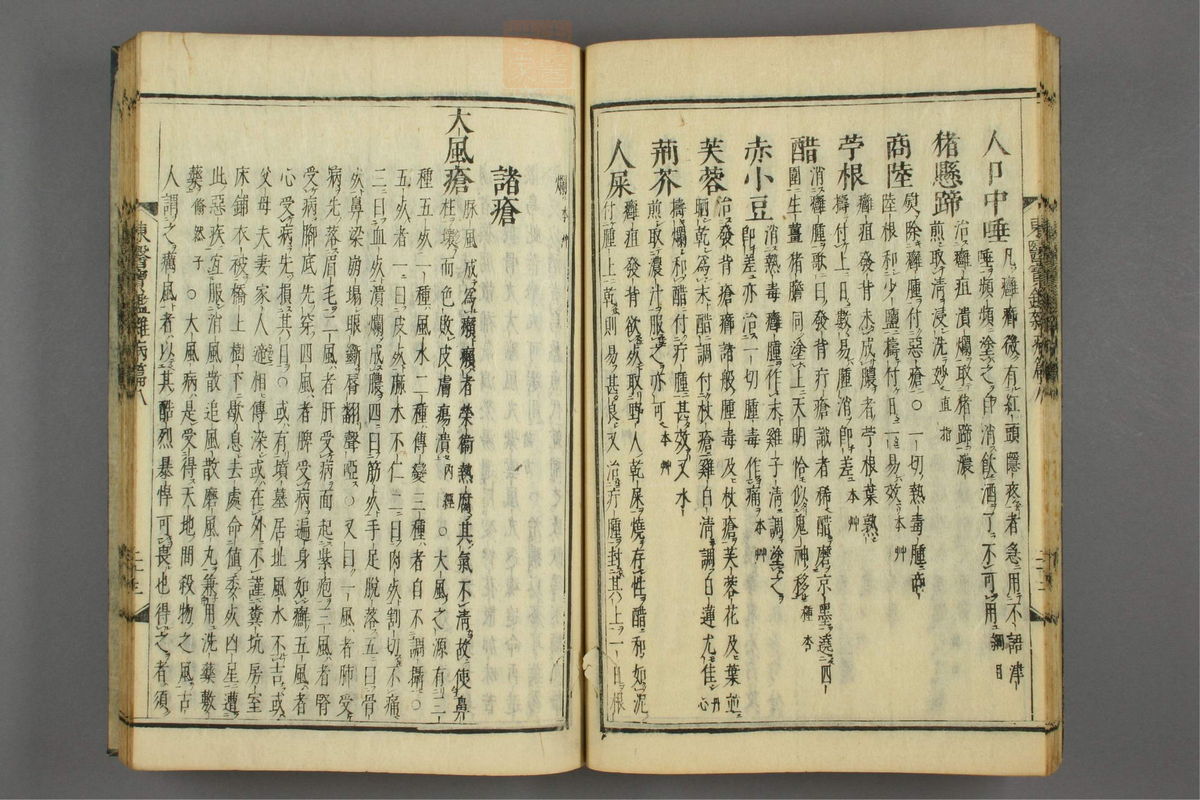 人口中唾 凡癰癤微有紅頭隱疼者急用不語津
唾頻頻塗之即消飲酒了不可用 綱目
猪懸蹄 治癰疽潰爛取猪蹄濃
煎取清浸洗妙 直指
商陸 熨除癰腫付惡瘡○一切熱毒腫商
陸根和少鹽擣付日一易效 本艸
苧根 癰疽發背未成膿者苧根葉熟
擣付上日數易腫消即差 本艸
醋 消癰腫歌曰發背疔瘡識者稀醋磨京墨遶四
圍生薑猪膽同塗上天明恰似鬼神移 種杏
赤小豆 消熱毒癰腫作末雞子清調塗之
即差亦治一切腫毒作痛 本艸
芙蓉 治發背瘡癤諸般腫毒及杖瘡芙蓉花及葉並
晒乾爲末醋調付杖瘡雞白清調白蓮尤佳 丹心
荊芥 擣爛和醋付疔腫甚效又水
煎取濃汁服之亦可 本艸
人屎 癰疽發背欲死取野人乾屎燒存性醋和如泥
付腫上乾則易甚良又治疔腫封其上一日根
爛 本艸
諸瘡
大風瘡 脉風成爲癩癩者榮衛熱腐其氣不清故使鼻
柱壞而色敗皮膚瘍潰 內經 ○大風之源有三
種五死一種風水二種傳變三種者自不調攝○
五死者一曰皮死麻木不仁二曰肉死割切不痛
三曰血死潰爛成膿四曰筋死手足脫落五曰骨
死鼻梁崩塌眼斷唇翻聲啞○又曰一風者肺受
病先落眉毛二風者肝受病面起紫疱三風者腎
受病脚底先穿四風者脾受病遍身如癬五風者
心受病先損其目○或有墳墓居址風水不吉或
父母夫妻家人遞相傳染或在外不謹糞坑房室
床鋪衣被橋上樹下歇息去處命値委死凶星遭
此惡疾宜服消風散追風散磨風丸兼用洗藥敷
藥 翛然子 ○大風病是受得天地間殺物之風古
人謂之癘風者以其酷烈暴悍可畏也得之者須
東醫寶鑑雜病篇八